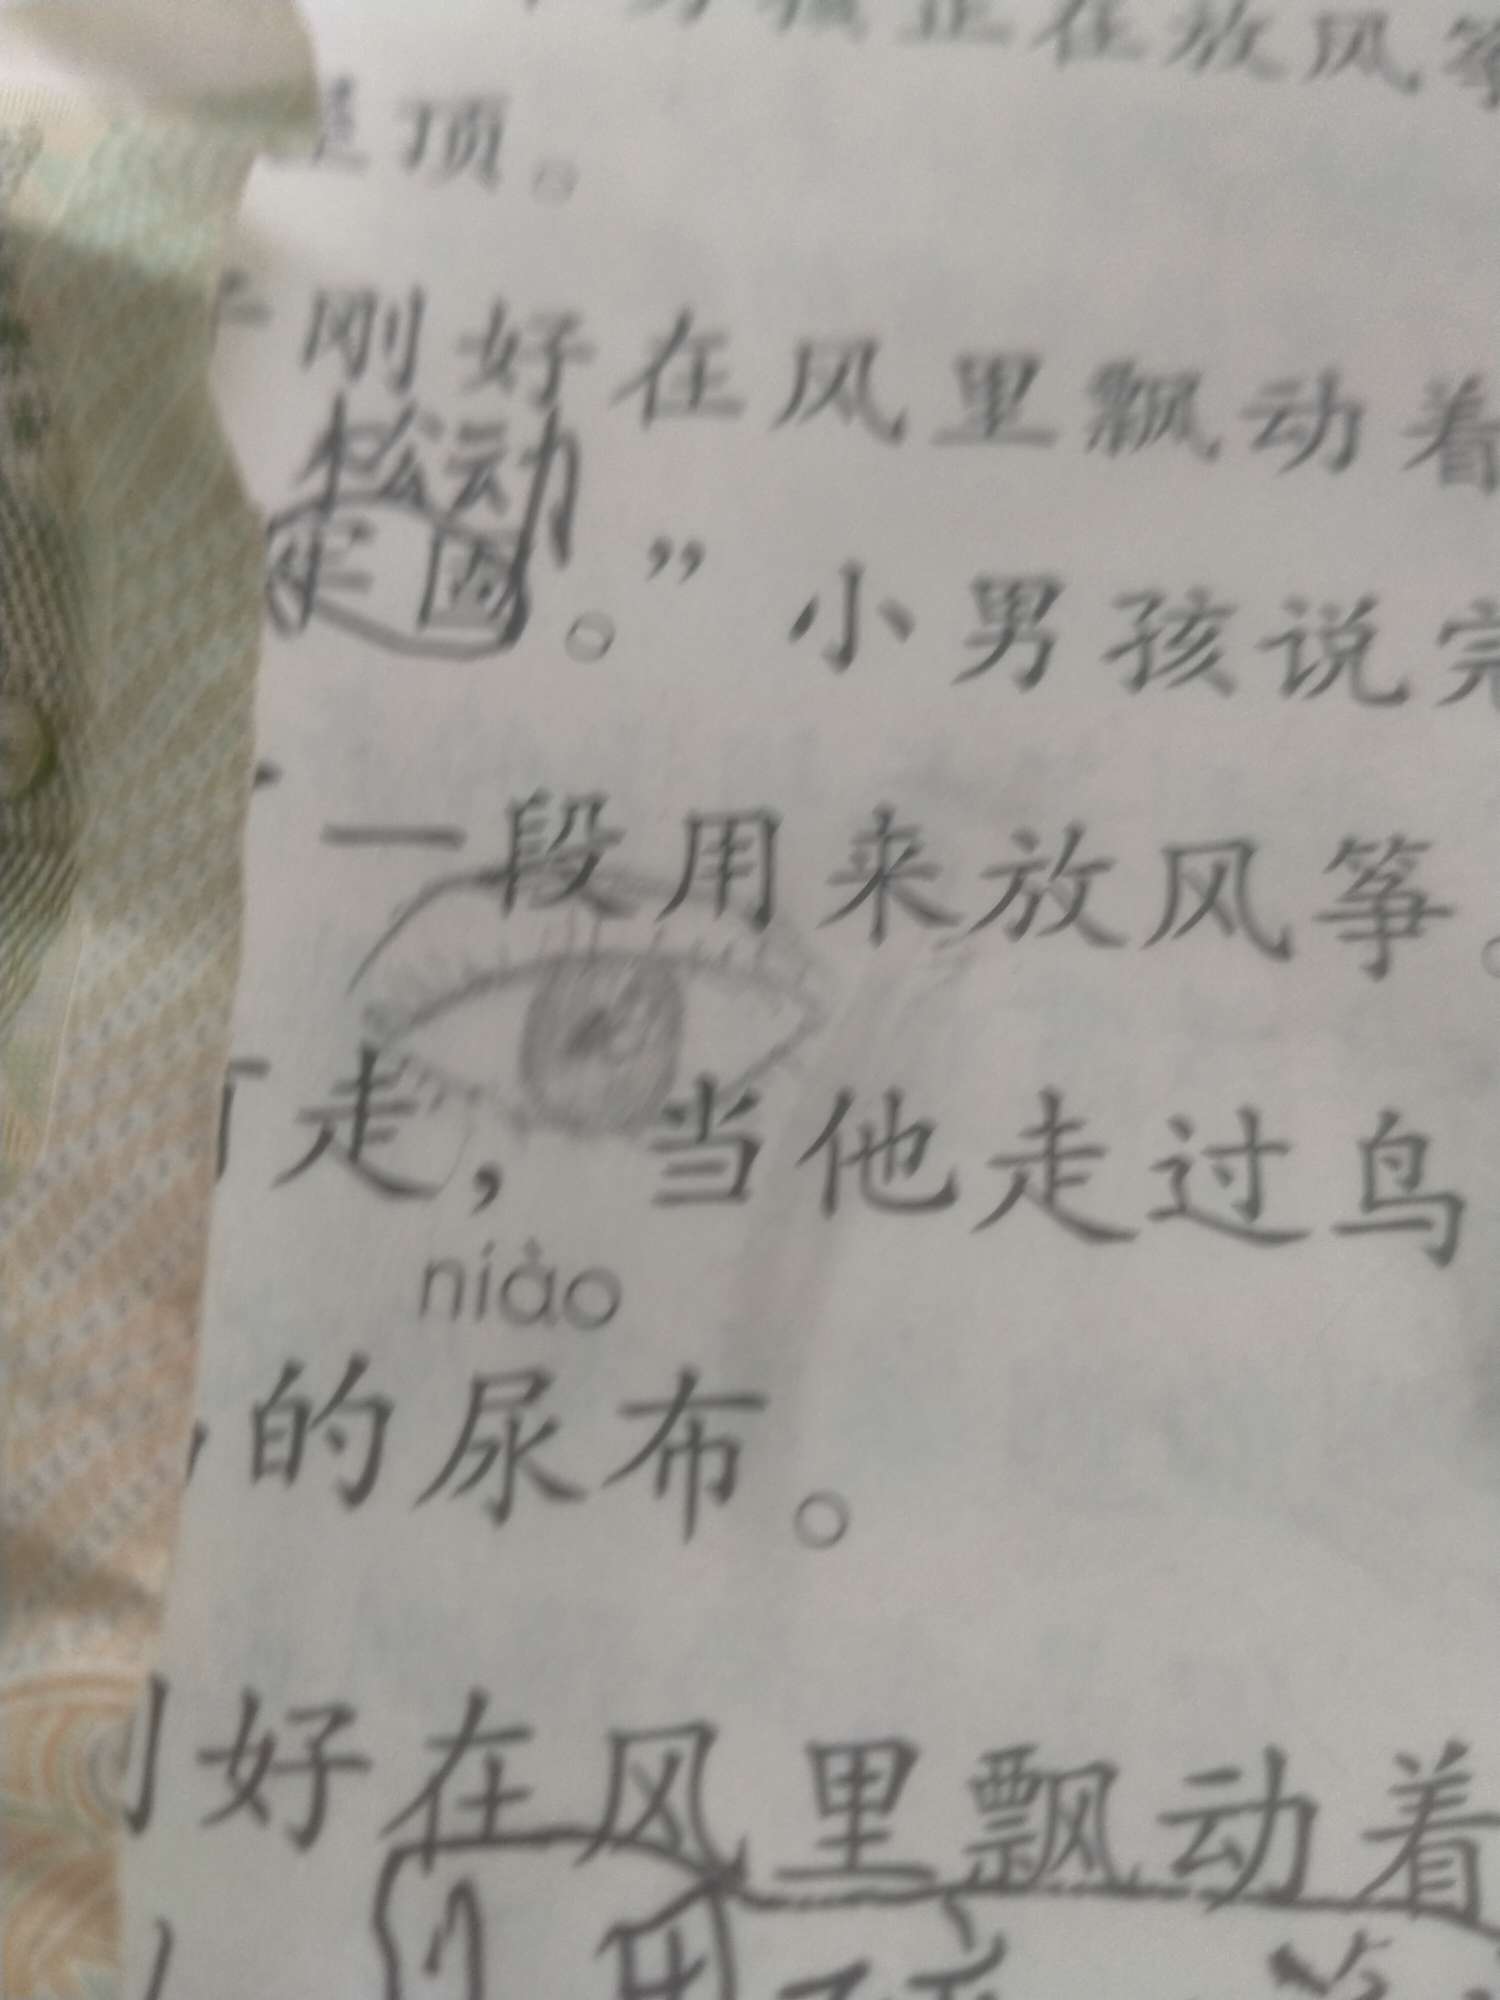 男孩正在放风筝
顶。
刚好在风里飘动着
松动
牢固。”小男孩说完
一段用来放风筝。
走，当他走过鸟
niào
的尿布。
好在风里飘动着